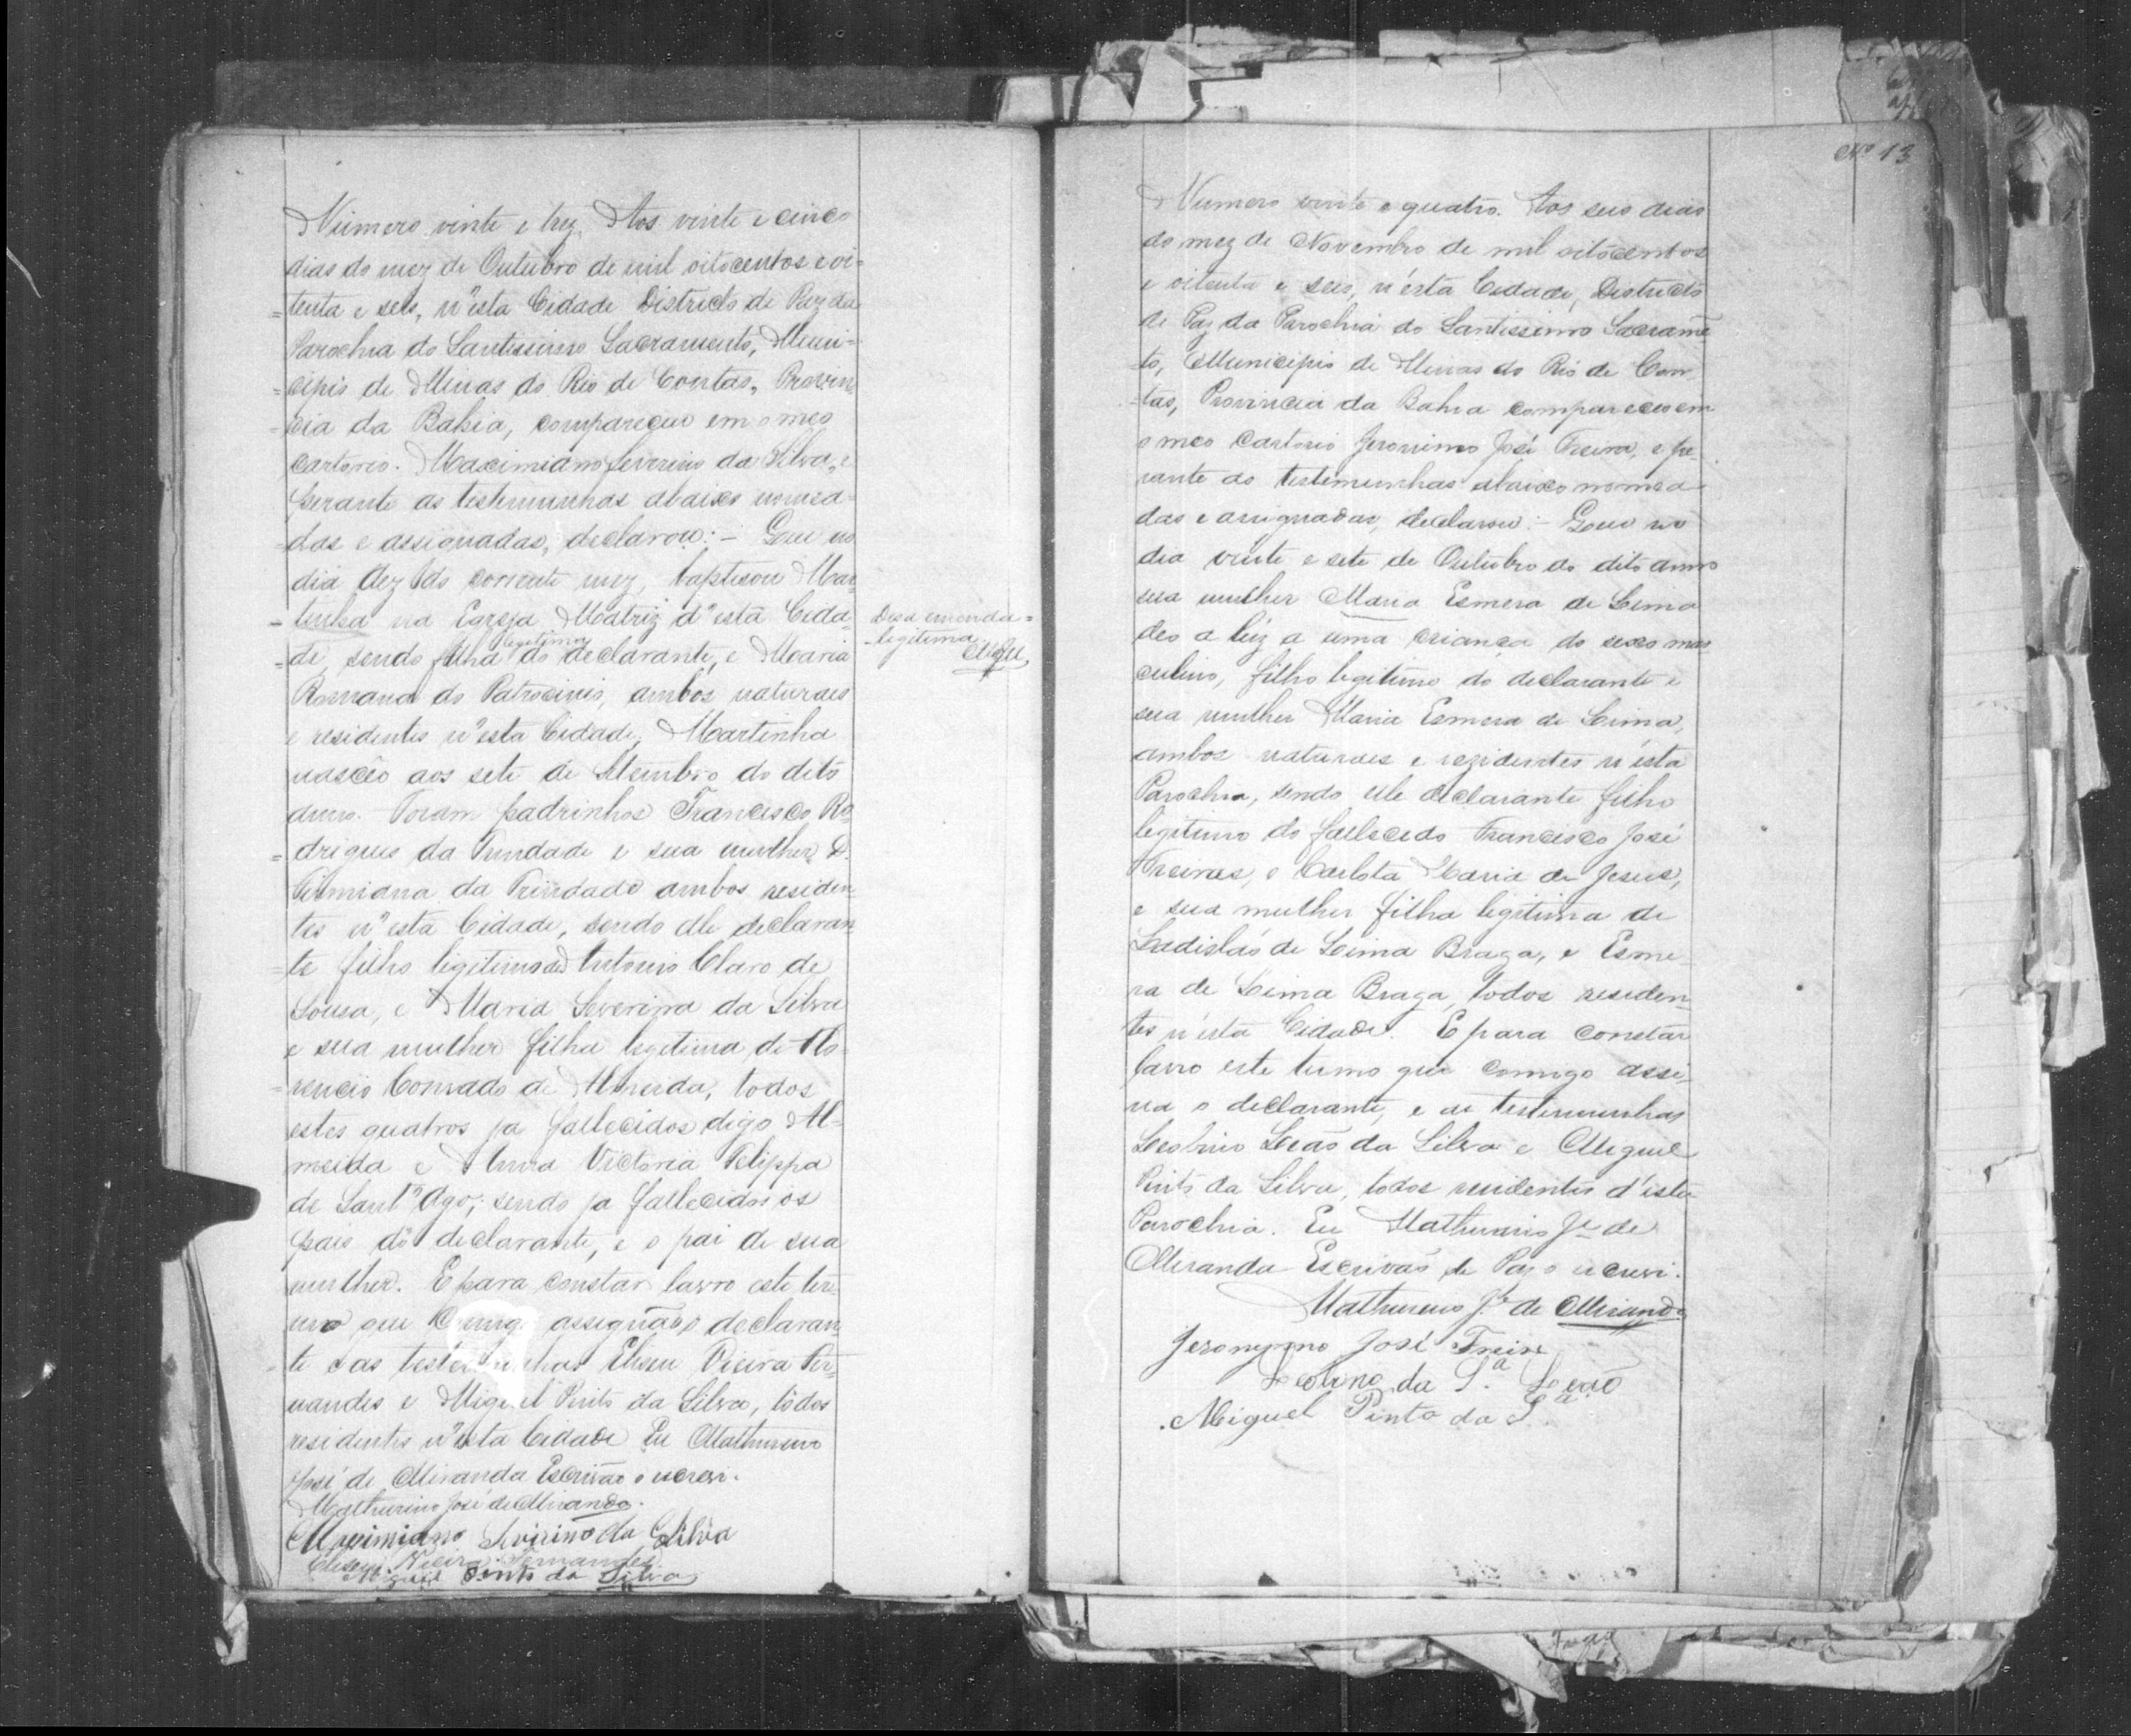 Número vinte e trez. Aos vinte e cinco
dias do mez de Outubro de mil oitocentos e oi=
=tenta e seis, n'esta Cidade Districto de Paz da
Parochia do Santissimo Sacramento, Muni=
=cipio de Minas do Rio de Contas, Provin
=cia da Bahia, compareceu em o meo
cartorio. Maximiano Severino da Silva, e
perante as testemunhas abaixo nomea=
=das e assignadas, declarou:- Que no
dia dez do corrente mez, baptisou Mar
=tinha na Egreja Matriz d'esta Cida=
=de, sendo filha legitima do declarante, e Maria
Romana do Patrocinio, ambos naturaes
e residentes n'esta Cidade, Martinha
nasceo aos sete de Setembro do dito
anno. Foram padrinhos Francisco Ro
=drigues da Trindade e sua mulher D.
da Trindade ambos residen
tes n'esta Cidade, sendo elle declaran
=te filho legitimo de Antonio Claro de
Sousa, e Maria Severina da Silva
e sua mulher filha legitima de Flo
=rencio Conrado de Almeida, todos
estes quatros ja fallecidos digo Al=
meida e Anna Victoria Felippa
de Sant'Ago; sendo ja fallecidos os
paes do declarante, e o pai de sua
mulher. E para constar lavro este ter
mo que comigo assignão o declaran
=te e as testemunhas Eliseu Vieira Fer=
nandes e Miguel Pinto da Silva, todos
residentes n'esta Cidade Eu Mathurino
José de Miranda Escrivão o escrevi.
Mathurino José de Miranda.
Maximiano Sivirino da Silva
Eliseu Vieira Fernandes
Miguel Pinto da Silva
emenda=
=legitima
Nº 13
Numero vinte e quatro. Aos seis dias
do mez de Novembro de mil oitocentos
e oitenta e seis, n'ésta Cidade, Districto
de Paz da Parochia do Santissimo Sacramẽ
=to, Municipio de Minas do Rio de Con
=tas, Provincia da Bahia compareceo em
o meo cartorio Jeronimo José Freire, e pe=
rante as testemunhas abaixo nomea=
das e assignadas, declarou:- Que no
dia vinte e sete de Outubro do dito anno
sua mulher Maria Esmera de Lima
deo a lúz a uma criança do sexo mas
culino, filho legitimo do declarante e
sua mulher Maria Esmera de Lima,
ambos naturaes e rezidentes n'ésta
Parochia, sendo elle declarante filho
legitimo do fallecido Francisco José
Freires, e Carlota Maria de Jesus,
e sua mulher filha legitima de
Ladisláo de Lima Braga, e Esme
ra de Lima Braga, todos residen
tes n'ésta Cidade. E para constar
lavro este termo que comigo assi=
na o declarante, e as testemunhas
Leolino Leão da Silva e Miguel
Pinto da Silva, todos residentes d'ésta
Parochia. Eu Mathurino Je de
Miranda Escrivão de Paz o escrevi.
Mathurino Je de Miranda
Jeronymo José Freire
Leolino da S.a Leão
Miguel Pinto da S.a